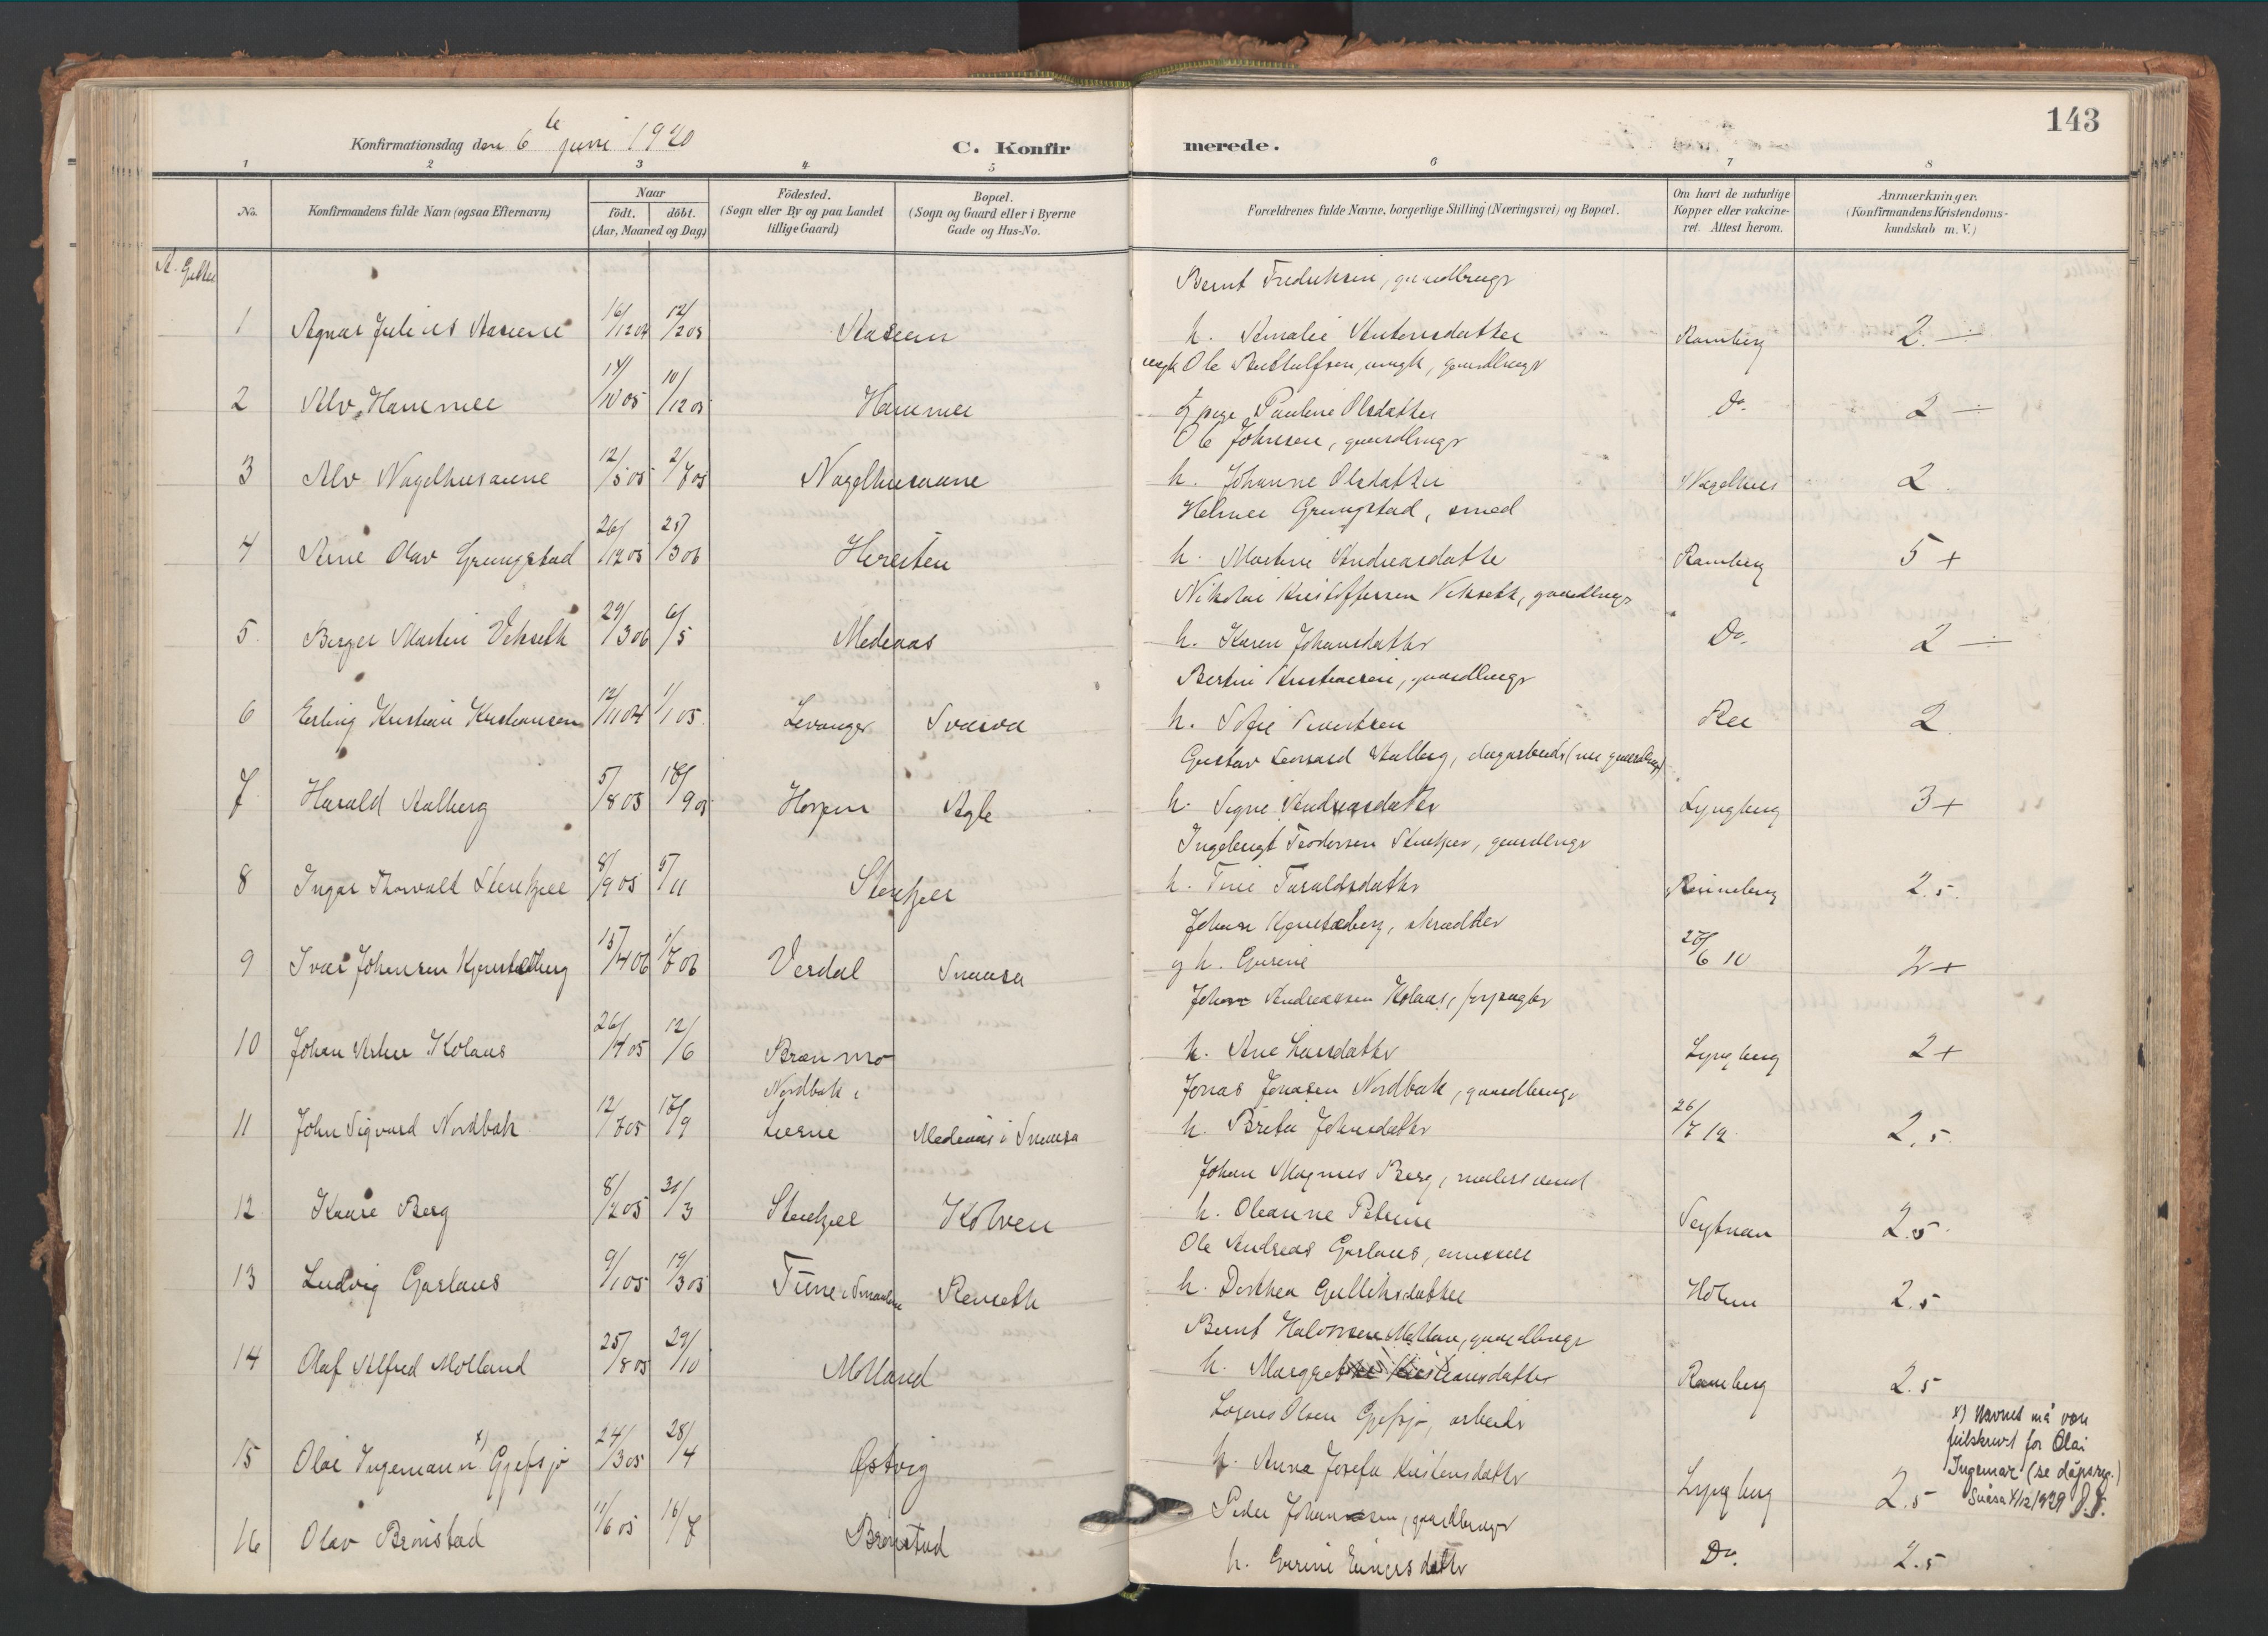 143
Konfirmationsdag den 6te juni 1920
C. Konfirmerede.
1 2 3 4 5 6 7 8
No.
Konfirmandens fulde Navn (ogsaa Efternavn)
Naar
födt. döbt.
(Aar, Maaned og Dag)
Födested.
(Sogn eller By og paa Landet
tillige Gaard)
Bopæl.
(Sogn og Gaard eller i Byerne
Gade og Hus-No.
Forældrenes fulde Navne, borgerlige Stilling (Næringsvei) og Bopæl.
Om havt de naturlige
Kopper eller vakcine-
ret. Attest herom.
Anmærkninger.
(Konfirmandens Kristendoms-
kundskab m. V.)
A. Gutter
Bernt Fredriksen, gaardbrugr
1 Agnar Julius Aasum 16/12 04 12/2 05 Aasum h. Amalie Antonsdatter Ramberg 2.÷
Ole, ungk, gaardbrugr
2 Alv Hammer 14/10 05 10/12 05 Hammer og pige Pauline Olsdatter Do. 2 ÷
Ole Johnsen, gaardbrugr
3 Alv Nagelhusaune 12/5 05 2/7 05 Nagelhusaune h. Johanne Olsdatter Nagelhus 2
Helmer Grungstad, smed
4 Arne Olav Grungstad 26/12 05 25/3 06 h. Martine Andreasdatter Ramberg 5 +
Nikolai Kristoffersen Vekseth, gaardbrugr
5. Berger Martin Vekseth 29/3 06 6/5 Medeaas h. Karen Johansdatter Do. 2 ÷
Bertin Kristiansen, gaardbrugr
6 Erling Kristian Kristiansen 12/11 04 1/1 05. Levanger Svarva h. Sofie Sivertsen Ree 2
Gustav Leonard Aalberg, dagarbeider (nu gaardbrugr)
7 Harald Aalberg 5/8 05 17/9 05 Agle h. Signe Andreasdatter Lyngberg 3 +
Ingebrigt Teodorsen Stenkjer, gaardbrugr
8 Ingar Thorvald Stenkjer 8/9 05 5/11 Stenkjer h. Tine Taraldsdatter 2.5.
Johan, skrædder
9 Ivar Johansen 15/4 06 1/7 06 Verdal Snaasa og h. Gurine 27/6 10 2+
Johan Andreassen Kolaas, forpagter
10 Johan Arthur Kolaas 26/4 05 12/6 Brænmo h. Ane Larsdatter Lyngberg 2 +
Nordbak i Jonas Jonasen Nordbak, gaardbrugr
11 John Sigvard Nordbak 12/7 05 17/9 Lierne Medeaas i Snaasa h. Brita Johnsdatter 26/7 12 2.5.
Johan Magnus Berg, malersvend
12 Kaare Berg 8/2 05 31/3 Stenkjer Kolven h. Oleanne Petrine 2.5
Ole Andreas Gaslaus
13 Ludvig Gaslaus 9/1 05 19/3 05 Tune Smaalene Renseth h. Dorthea Gulliksdatter Holm 2.5
Bernt Halvorsen Molland, gaardbrugr
14 Olaf Alfred Molland 25/8 05 29/10 Molland h. Margret Kristiansdatter Ramberg 2.5
Olsen Gjefsjø, arbeider
15 Olai Ingemann x) Gjefsjø 24/3 05 28/4 Østvig h. Anna Josefa Kristensdatter Lyngberg 2.5
x) Navnet må være
feilskrevet for Olai
Ingemar (se dåpsreg.)
Snåsa 4/12 1929 J.F.
Peder Johansen, gaardbruger
16 Olav Brønstad 11/6 05 16/7 Brønstad h. Gurine Einarsdatter Do. 2.5